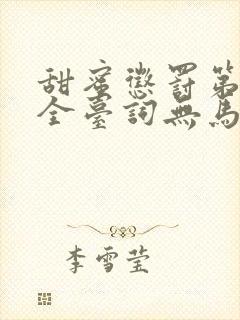 甜蜜懲罰第
全臺詞無馬
李雪莹